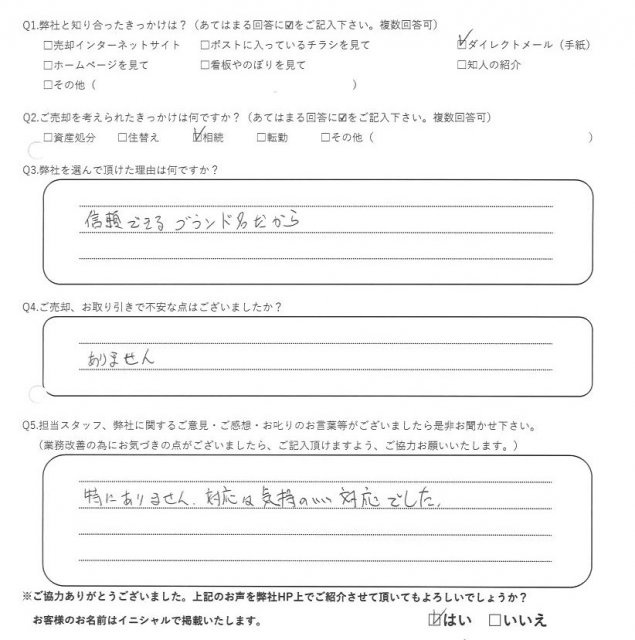 Q1.弊社と知り合ったきっかけは？（あてはまる回答に☑をご記入下さい。複数回答可）
□売却インターネットサイト □ポストに入っているチラシを見て ☑ダイレクトメール（手紙）
□ホームページを見て □看板やのぼりを見て □知人の紹介
□その他（ ）
Q2.ご売却を考えられたきっかけは何ですか？（あてはまる回答に☑をご記入下さい。複数回答可）
□資産処分 □住替え ☑相続 □転勤 □その他（ ）
Q3.弊社を選んで頂けた理由は何ですか？
信頼できるブランド名だから
Q4.ご売却、お取り引きで不安な点はございましたか？
ありません
Q5.担当スタッフ、弊社に関するご意見・ご感想・お叱りのお言葉等がございましたら是非お聞かせ下さい。
（業務改善の為にお気づきの点がございましたら、ご記入頂けますよう、ご協力お願いいたします。）
特にありません。対応は気持のいい対応でした。
※ご協力ありがとうございました。上記のお声を弊社HP上でご紹介させて頂いてもよろしいでしょうか？
お客様のお名前はイニシャルで掲載いたします。 ☑はい □いいえ